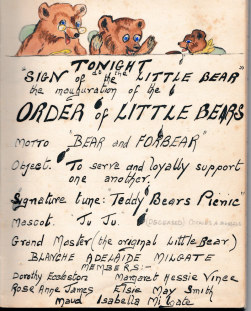 TONIGHT
"SIGN of the LITTLE BEAR"
the inauguration of the
ORDER of LITTLE BEARS
MOTTO "BEAR and FORBEAR"
Object. To serve and loyally support
one another.
Signature tune: Teddy Bears Picnic
Mascot. Ju Ju.
Grand Master (the original Little Bear)
BLANCHE ADELAIDE MILGATE
MEMBERS:-
Dorothy Margaret Hessie Vince
Rose Anne James Elsie May Smith
Maud Isabella Milgate